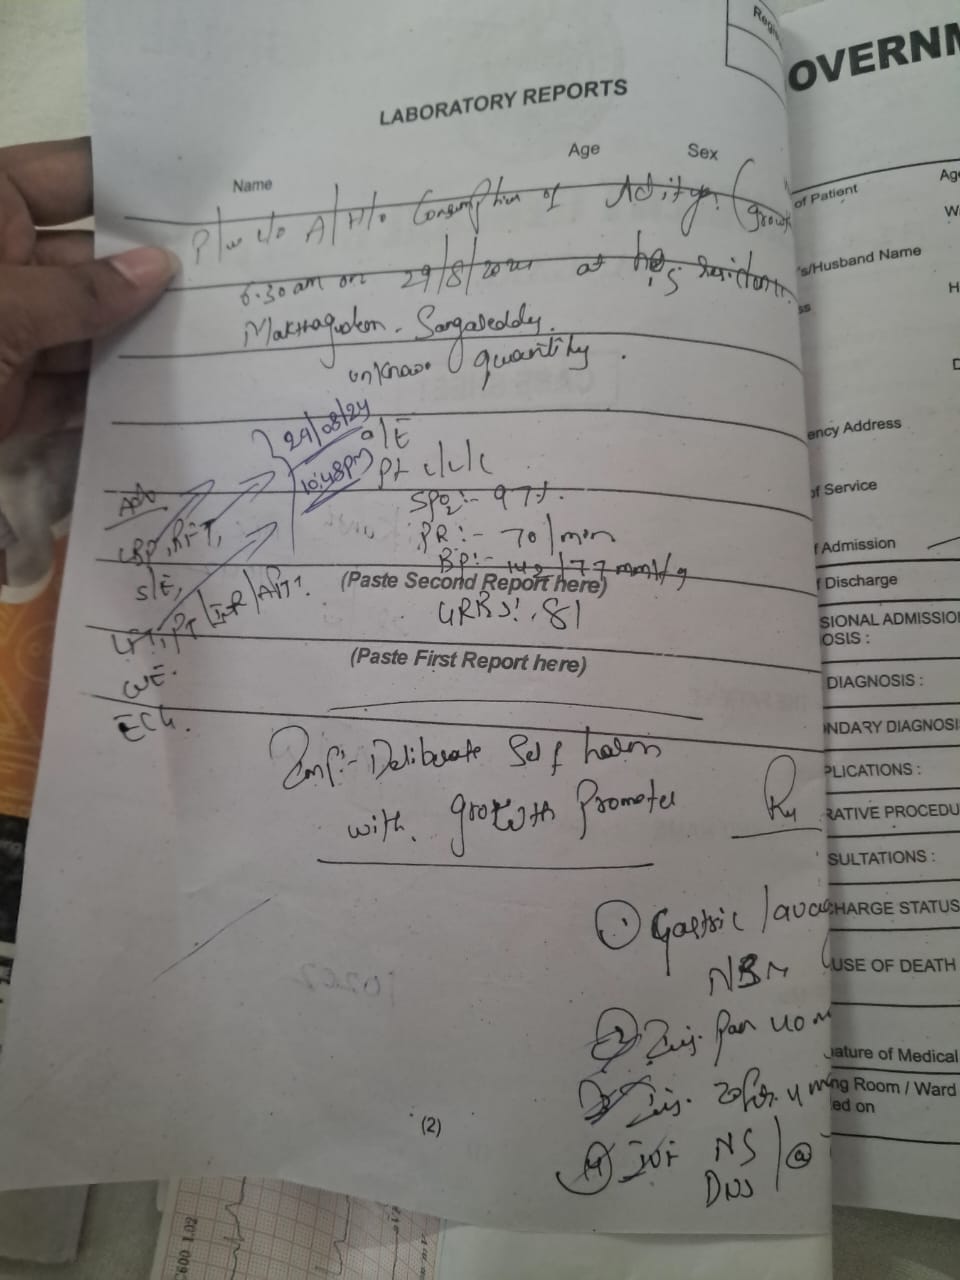 LABORATORY REPORTS
Name Age Sex
P/w c/o A/H/o Consumption of
6.30am on 29/8/2024 at his
Sangareddy.
unknown quantity.
29/08/24
10:48pm
O/E
Pt c/c/c
SPO2:- 97%.
PR:- 70/min
BP:- /77 mmHg
(Paste Second Report here)
GRBS:. 81
(Paste First Report here)
Adv
CBP, RFT,
S/E,
LFT, PT/INR/APTT
CUE.
ECG.
Imp:- Deliberate Self harm
with growth Promoter
Rx
① Gastric lavage
NBM
② Inj. Pan 40 m
③ Inj. Zofer 4 m
④ IVF NS / @
DNS
(2)
OVERNM
of Patient
Age
's/Husband Name
ss
ency Address
of Service
f Admission
f Discharge
SIONAL ADMISSIO
OSIS :
DIAGNOSIS :
NDARY DIAGNOSI
PLICATIONS :
RATIVE PROCEDU
SULTATIONS :
HARGE STATUS
USE OF DEATH
ature of Medical
ng Room / Ward
ed on